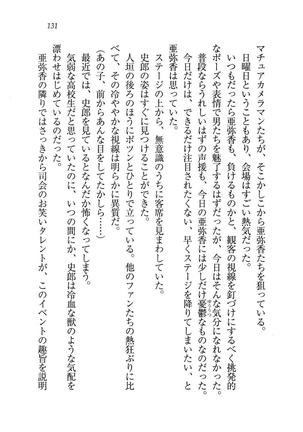 131
マチュアカメラマンたちが、そこかしこから亜弥香たちを狙っている。
日曜日ということもあり、会場はすごい熱気だった。
いつもだったら亜弥香も、負けるものかと、観客の視線を釘づけにするべく挑発的
なポーズや表情で男たちを魅了するはずだった。だが、今日はそんな気分になれない。
普段ならうれしいはずの声援も、今日の亜弥香には少しだけ憂鬱なものなのだった。
今日だけは、できるだけ注目されない、早くステージを降りてしまいたい、と
亜弥香は思っていた。
ステージの上から、無意識のうちに客席を見まわしていた。
史郎の姿はすぐに見つけることができた。
人垣の後ろのほうにポツンとひとりで立っている。他のファンたちの熱狂ぶりに比
べて、その冷ややかな視線は明らかに異質だ。
(あの子、前からあんな目をしてたかしら……)
最近では、史郎を見ているとなんだか怖くなってしまう。
気弱な高校生だと思っていたのに、いつの間にか、史郎は冷血な獣のような気配を
漂わせはじめているのだった。
亜弥香の隣りではさっきから司会のお笑いタレントが、このイベントの趣旨を説明